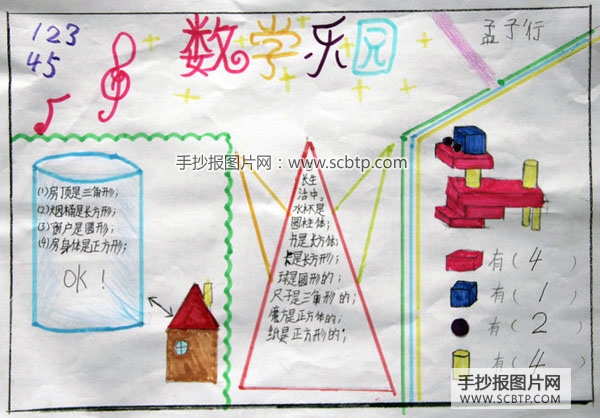 123
45
数学乐园
孟予行
手抄报图片网：www.scbtp.com
(1)房顶是三角形；
(2)烟桶是长方形；
(3)窗户是圆形；
(4)房身体是正方形；
OK！
生
活中，
水杯是
圆柱体；
书是长方体；
是长方形；
球是圆形的；
尺子是三角形的；
魔方是正方体的；
纸是正方形的；
有（4）
有（1）
有（2）
有（4）
手抄报图片网
WWW.SCBTP.COM